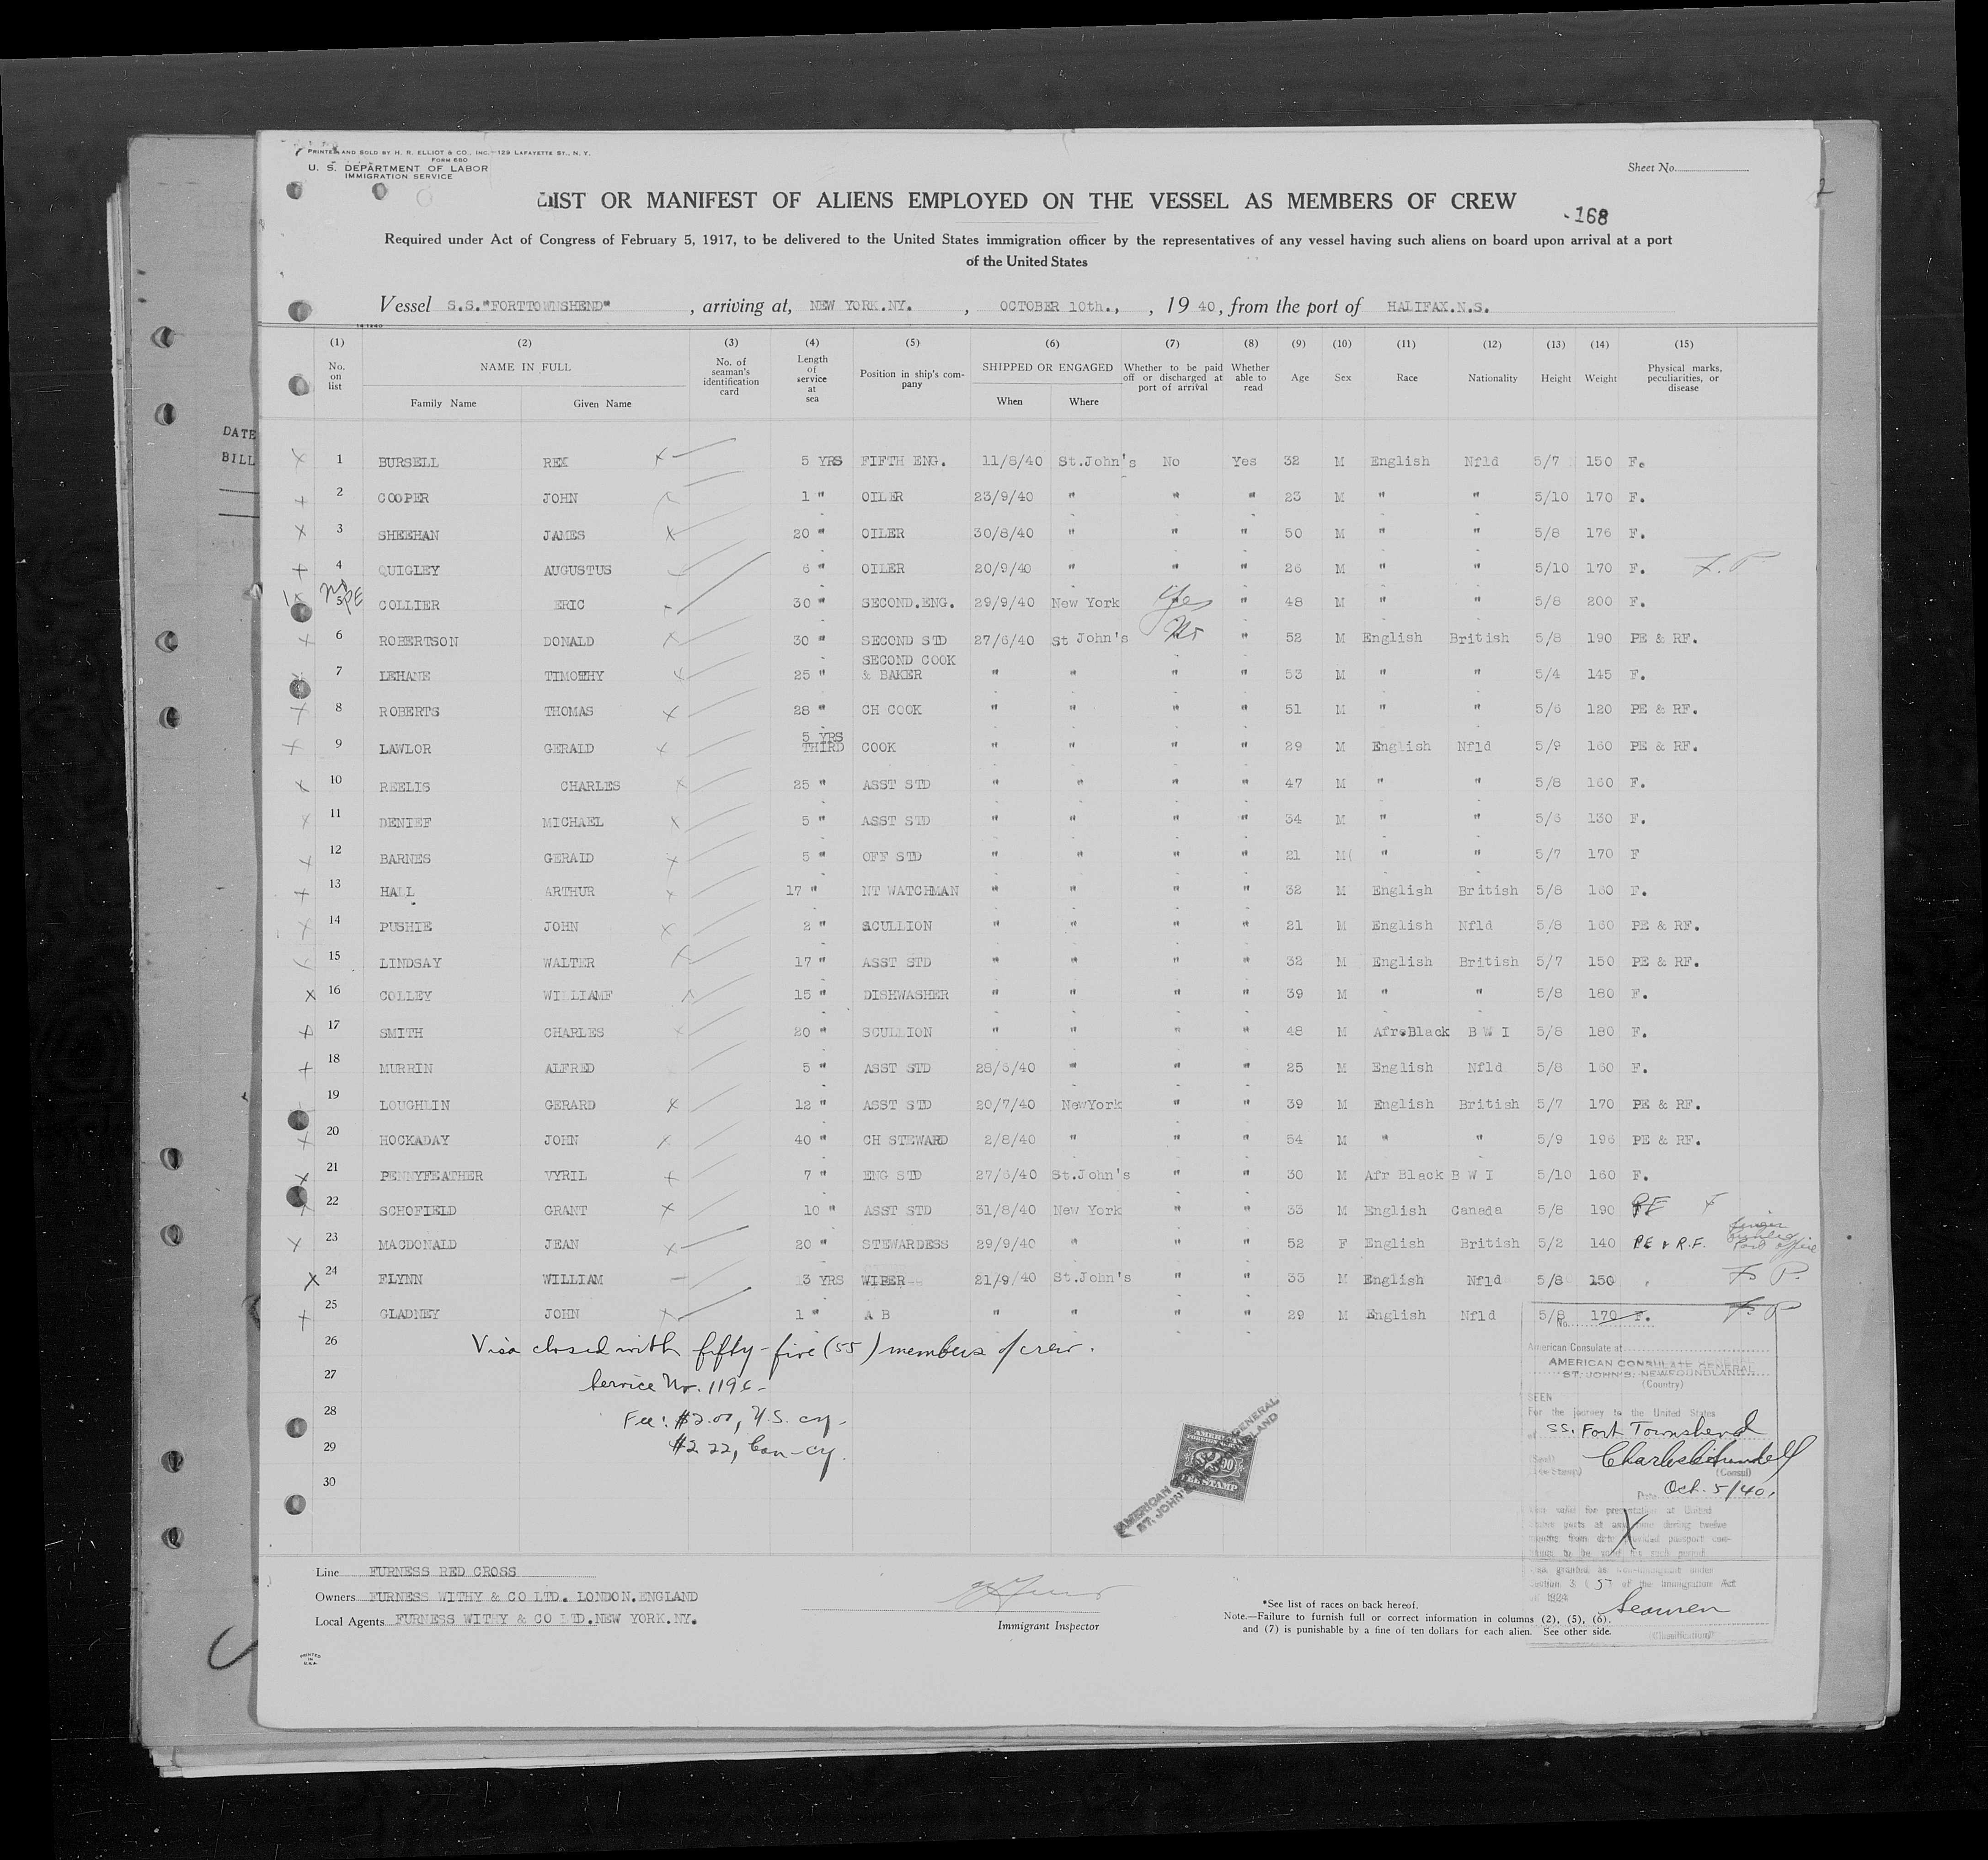 PRINTED AND SOLD BY H. R. ELLIOT & CO., INC. 129 LAFAYETTE ST., N. Y.
FORM 680
U. S. DEPARTMENT OF LABOR
IMMIGRATION SERVICE
Sheet No.
LIST OR MANIFEST OF ALIENS EMPLOYED ON THE VESSEL AS MEMBERS OF CREW
168
Required under Act of Congress of February 5, 1917, to be delivered to the United States immigration officer by the representatives of any vessel having such aliens on board upon arrival at a port
of the United States
Vessel S.S."FORTTOWNSHEND" , arriving at, NEW YORK.NY. , OCTOBER 10th., , 1940, from the port of HALIFAX.N.S.
(1) (2) (3) (4) (5) (6) (7) (8) (9) (10) (11) (12) (13) (14) (15)
No. on list NAME IN FULL Family Name Given Name No. of seaman's identification card Length of service at sea Position in ship's company SHIPPED OR ENGAGED When Where Whether to be paid off or discharged at port of arrival Whether able to read Age Sex Race Nationality Height Weight Physical marks, peculiarities, or disease
DATE
BILL
1 BURSELL REX 5 YRS FIFTH ENG. 11/8/40 St.John's No Yes 32 M English Nfld 5/7 150 F.
2 COOPER JOHN 1 " OILER 23/9/40 " " " 23 M " " 5/10 170 F.
3 SHEEHAN JAMES 20 " OILER 30/8/40 " " " 50 M " " 5/8 176 F.
4 QUIGLEY AUGUSTUS 6 " OILER 20/9/40 " " " 26 M " " 5/10 170 F. F. P.
5 COLLIER ERIC 30 " SECOND.ENG. 29/9/40 New York Yes " 48 M " " 5/8 200 F.
6 ROBERTSON DONALD 30 " SECOND STD 27/6/40 St John's No " 52 M English British 5/8 190 PE & RF.
7 LEHANE TIMOTHY 25 " SECOND COOK & BAKER " " " " 53 M " " 5/4 145 F.
8 ROBERTS THOMAS 28 " CH COOK " " " " 51 M " " 5/6 120 PE & RF.
9 LAWLOR GERALD 5 YRS THIRD COOK " " " " 29 M English Nfld 5/9 160 PE & RF.
10 REELIS CHARLES 25 " ASST STD " " " " 47 M " " 5/8 160 F.
11 DENIEF MICHAEL 5 " ASST STD " " " " 34 M " " 5/6 130 F.
12 BARNES GERALD 5 " OFF STD " " " " 21 M( " " 5/7 170 F
13 HALL ARTHUR 17 " NT WATCHMAN " " " " 32 M English British 5/8 160 F.
14 PUSHIE JOHN 2 " SCULLION " " " " 21 M English Nfld 5/8 160 PE & RF.
15 LINDSAY WALTER 17 " ASST STD " " " " 32 M English British 5/7 150 PE & RF.
16 COLLEY WILLIAMF 15 " DISHWASHER " " " " 39 M " " 5/8 180 F.
17 SMITH CHARLES 20 " SCULLION " " " " 48 M Afr.Black B W I 5/8 180 F.
18 MURRIN ALFRED 5 " ASST STD 28/6/40 " " " 25 M English Nfld 5/8 160 F.
19 LOUGHLIN GERARD 12 " ASST STD 20/7/40 NewYork " " 39 M English British 5/7 170 PE & RF.
20 HOCKADAY JOHN 40 " CH STEWARD 2/8/40 " " " 54 M " " 5/9 196 PE & RF.
21 PENNYFEATHER VYRIL 7 " ENG STD 27/6/40 St.John's " " 30 M Afr Black B W I 5/10 160 F.
22 SCHOFIELD GRANT 10 " ASST STD 31/8/40 New York " " 33 M English Canada 5/8 190 PE F
23 MACDONALD JEAN 20 " STEWARDESS 29/9/40 " " " 52 F English British 5/2 140 PE & R.F.
24 FLYNN WILLIAM 13 YRS WIPER 21/9/40 St.John's " " 33 M English Nfld 5/8 150 F. P.
25 GLADNEY JOHN 1 " A B " " " " 29 M English Nfld 5/8 170 F. F. P
26 Visa closed with fifty-five (55) members of crew.
27 Service No. 1196-
28 Fee: $2.00, U.S. cy-
29 $2.22, Can-cy.
30
No.
American Consulate at
AMERICAN CONSULATE GENERAL
ST. JOHN'S, NEWFOUNDLAND
(Country)
SEEN
For the journey to the United States
SS. Fort Townshend
(Consul)
Date Oct. 5/40.
Section 3 (5) of the Immigration Act
1924
Seamen
(Classification)
AMERICAN
FOREIGN SERVICE
$2.00
FEE STAMP
Line FURNESS RED CROSS
Owners FURNESS WITHY & CO LTD. LONDON.ENGLAND
Local Agents FURNESS WITHY & CO LTD.NEW YORK.NY.
Immigrant Inspector
*See list of races on back hereof.
Note.—Failure to furnish full or correct information in columns (2), (5), (6),
and (7) is punishable by a fine of ten dollars for each alien. See other side.
PRINTED IN U.S.A.